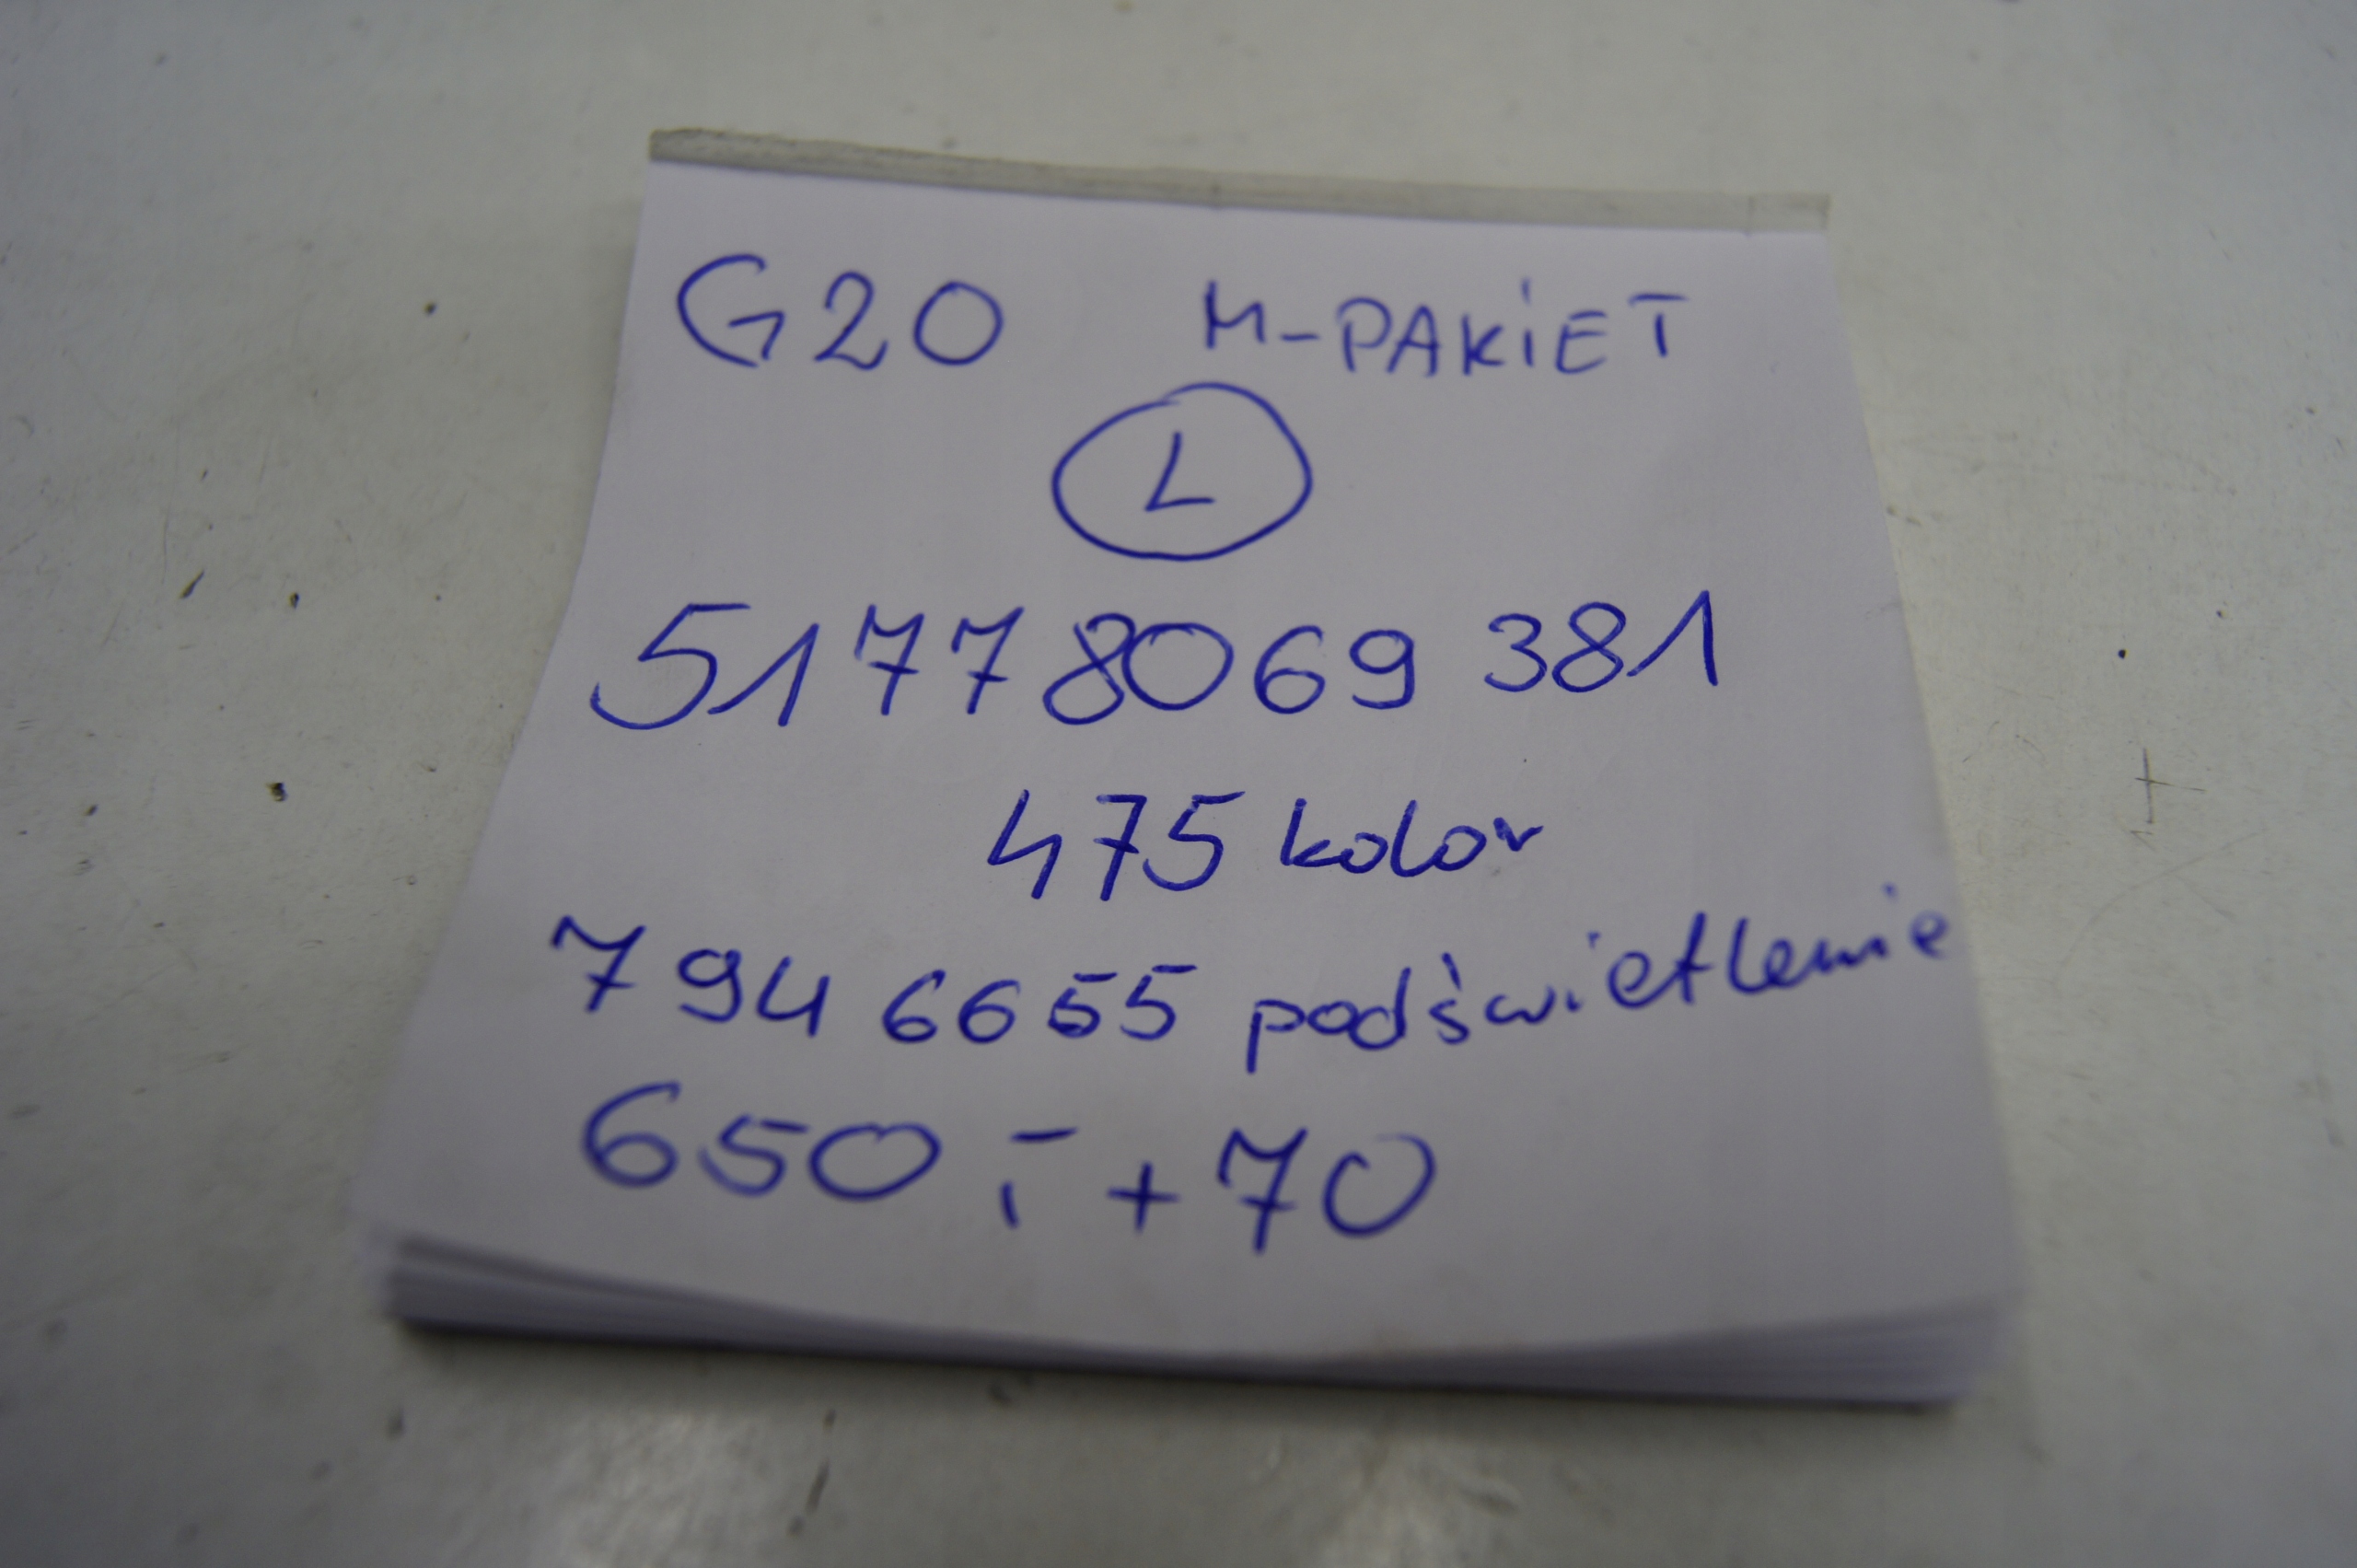 G20 M-PAKiET
L
51778069 381
475 kolor
794 6655 podświetlenie
650,- + 70